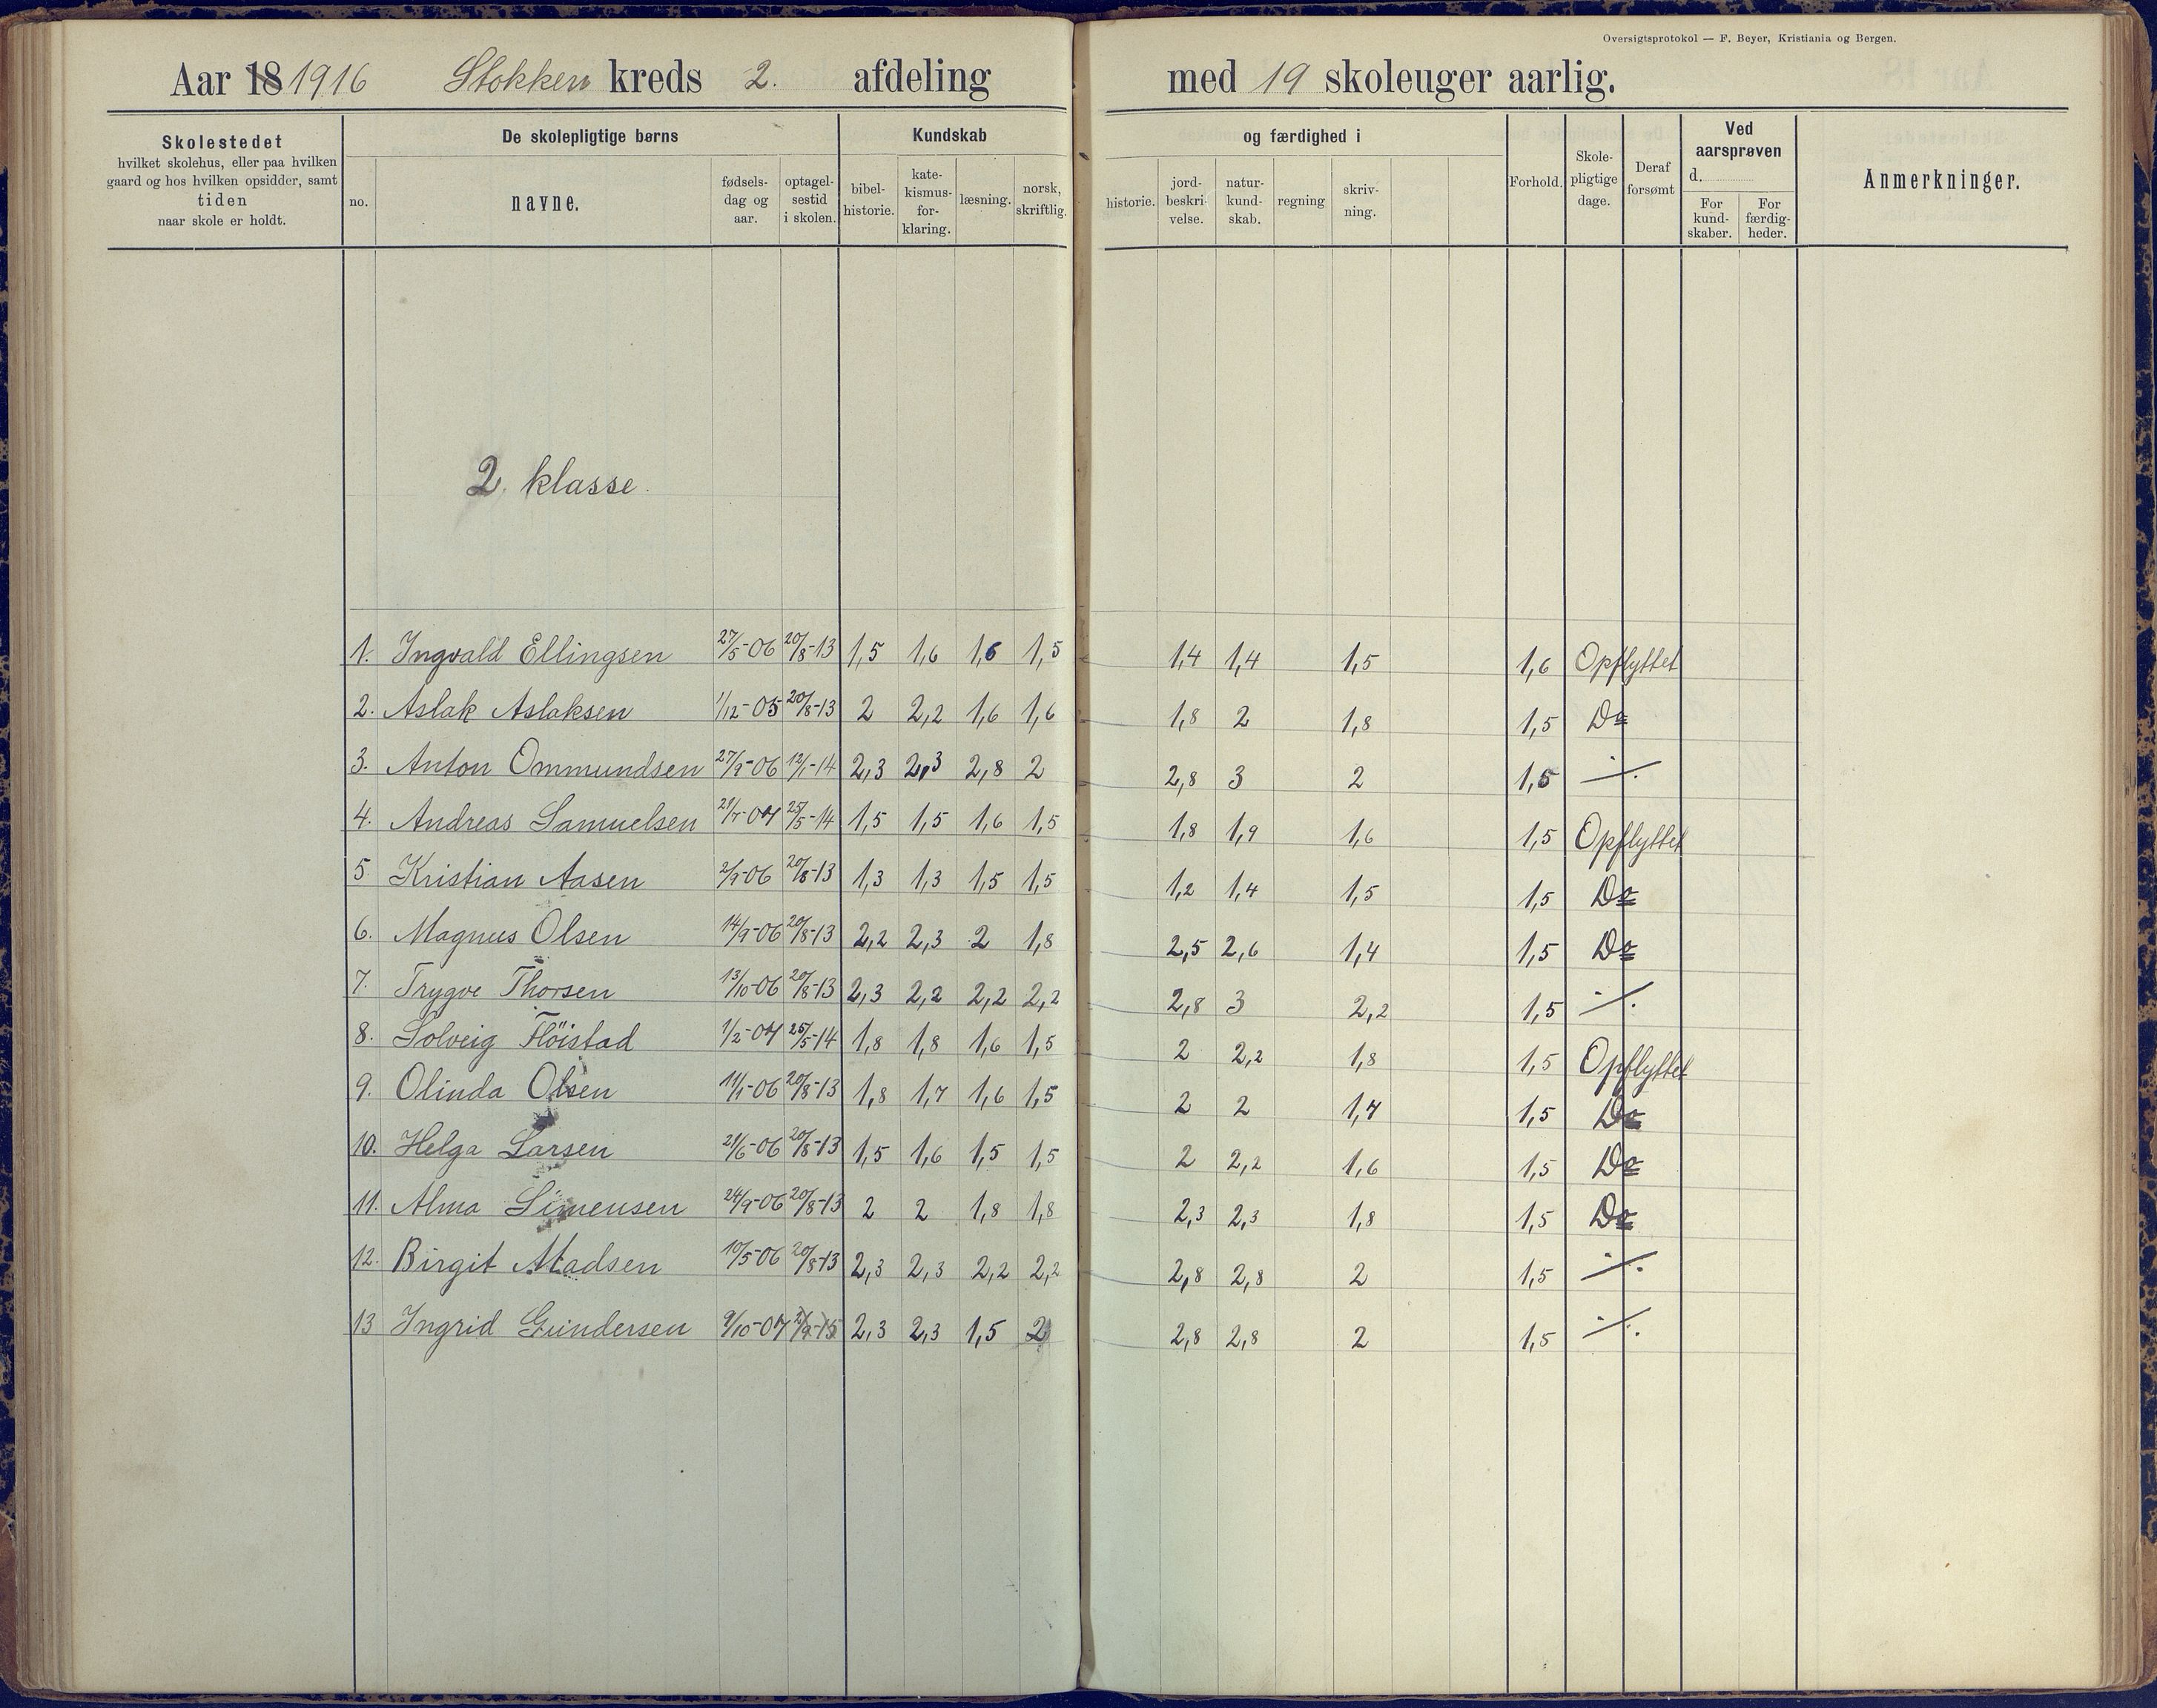 Oversigtsprotokol — F. Beyer, Kristiania og Bergen.
Aar 18 1916 Stokken kreds 2. afdeling med 19 skoleuger aarlig.
Skolestedet
hvilket skolehus, eller paa hvilken
gaard og hos hvilken opsidder, samt
tiden
naar skole er holdt.
De skolepligtige børns
no.
navne.
fødsels-
dag og
aar.
optagel-
sestid
i skolen.
Kundskab
bibel-
historie.
kate-
kismus-
for-
klaring.
læsning.
norsk,
skriftlig.
og færdighed i
historie.
jord-
beskri-
velse.
natur-
kund-
skab.
regning
skriv-
ning.
Forhold.
Skole-
pligtige
dage.
Deraf
forsømt
Ved
aarsprøven
d.
For
kund-
skaber.
For
færdig-
heder.
Anmerkninger.
2. klasse.
1. Ingvald Ellingsen 27/5-06 20/8-13 1,5 1,6 1,6 1,5 1,4 1,4 1,5 1,6 Opflyttet
2. Aslak Aslaksen 1/12-05 20/8-13 2 2,2 1,6 1,6 1,8 2 1,8 1,5 Do
3. Anton Ommundsen 27/9-06 12/1-14 2,3 2,3 2,8 2 2,8 3 2 1,5 ·/.
4. Andreas Samuelsen 21/7-07 25/5-14 1,5 1,5 1,6 1,5 1,8 1,9 1,6 1,5 Opflyttet
5 Kristian Aasen 2/9-06 20/8-13 1,3 1,3 1,5 1,5 1,2 1,4 1,5 1,5 Do
6. Magnus Olsen 14/9-06 20/8-13 2,2 2,3 2 1,8 2,5 2,6 1,4 1,5 Do
7. Trygve Thorsen 13/10-06 20/8-13 2,3 2,2 2,2 2,2 2,8 3 2,2 1,5 ·/.
8. Solveig Flöistad 1/2-07 25/5-14 1,8 1,8 1,6 1,5 2 2,2 1,8 1,5 Opflyttet
9. Olinda Olsen 11/1-06 20/8-13 1,8 1,7 1,6 1,5 2 2 1,7 1,5 Do
10. Helga Larsen 21/6-06 20/8-13 1,5 1,6 1,5 1,5 2 2,2 1,6 1,5 Do
11. Alma Simensen 24/9-06 20/8-13 2 2 1,8 1,8 2,3 2,3 1,8 1,5 Do
12. Birgit Madsen 10/5-06 20/8-13 2,3 2,3 2,2 2,2 2,8 2,8 2 1,5 ·/.
13 Ingrid Gundersen 9/10-07 2,3 2,3 1,5 2 2,8 2,8 2 1,5 ·/.